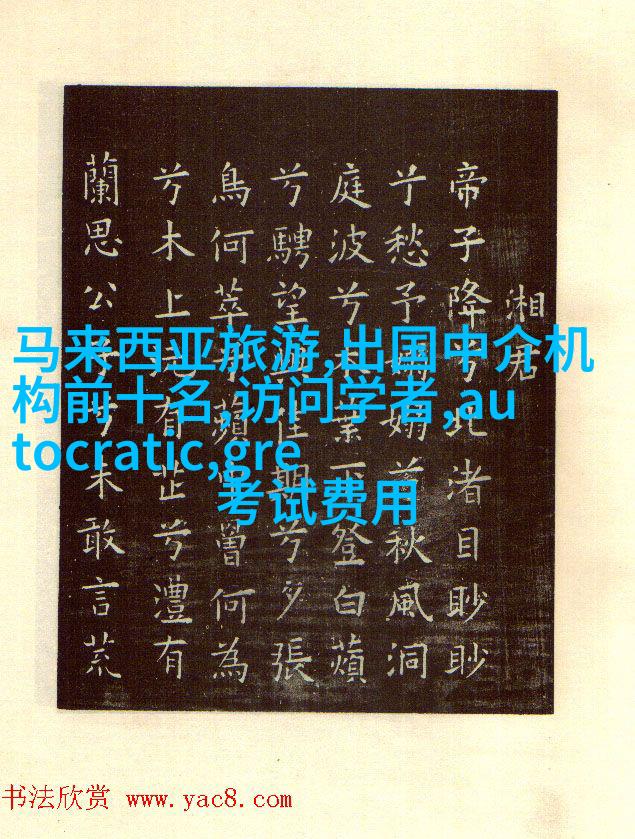 湘君
帝子降兮北渚目眇眇
兮愁予嫋嫋兮秋風洞
庭波兮木葉下登白蘋
兮騁望佳期兮夕張
鳥何萃兮蘋中罾何為
兮木上沅有芷兮澧有
蘭思公子兮未敢言荒
马来西亚旅游,出国中介机
构前十名,访问学者,au
tocratic,gre
考试费用
书法欣赏 www.yac8.com